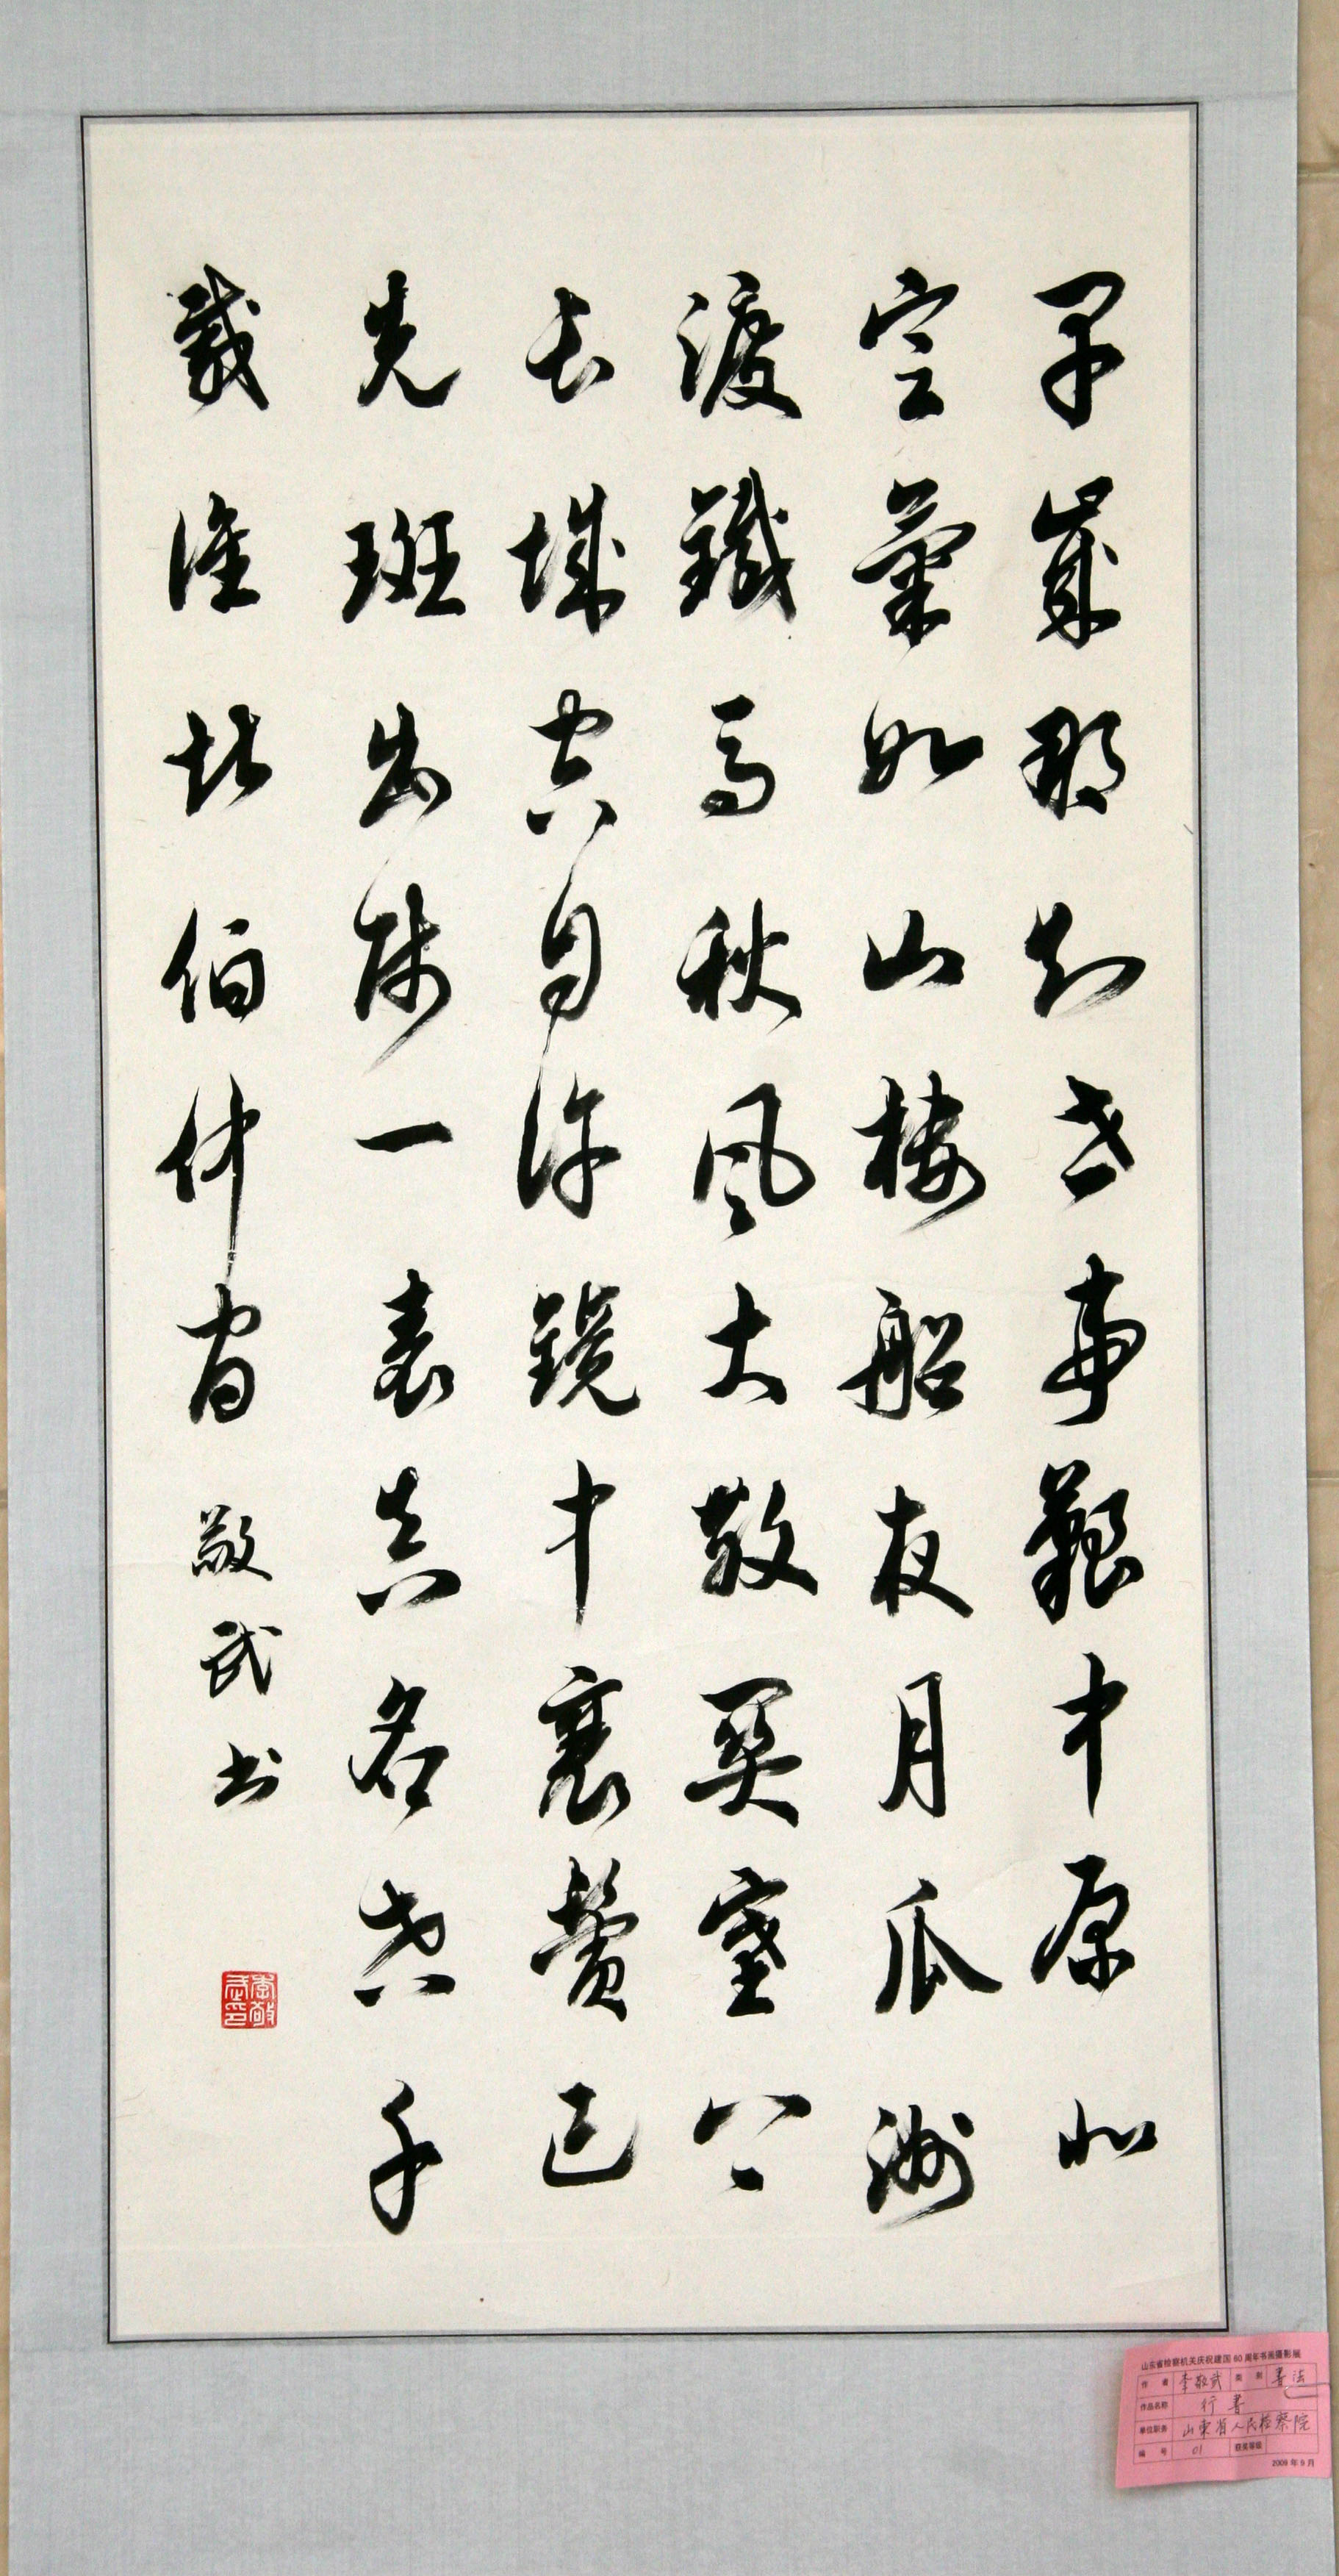 早歲那知世事艱中原北
望氣如山樓船夜月瓜洲
渡鐵馬秋風大散關塞上
長城空自許鏡中衰鬢已
先斑出師一表真名世千
載誰堪伯仲間 敬武書
李敬武印
山东省检察机关庆祝建国60周年书画摄影展
作者 李敬武 类别 書法
作品名称 行書
单位职务 山東省人民检察院
编号 01 获奖等级
2009年9月